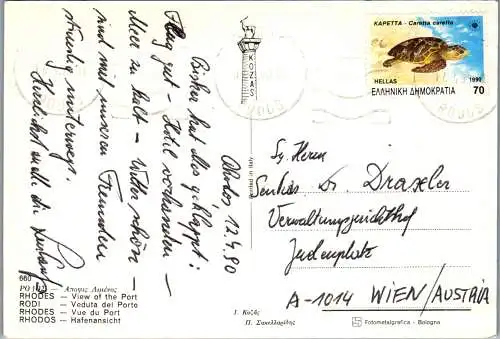 Rhodos, 12.4.90
Bisher hat alles geklappt:
Flug gut – Hotel vorhanden –
Meer zu kalt – Wetter schön –
und mit unseren Freunden
ständig unterwegs.
Herzlichst an alle die
ΚΑΡΕΤΤΑ - Caretta caretta
HELLAS 1990
ΕΛΛΗΝΙΚΗ ΔΗΜΟΚΡΑΤΙΑ 70
KOZAS
Printed in Italy
Herrn
Dr. Draxler
Verwaltungsgerichtshof
Judenplatz
A-1014 WIEN/AUSTRIA
660
— Αποψις Λιμένος
RHODES — View of the Port
RODI — Veduta del Porto
RHODES — Vue du Port
RHODOS — Hafenansicht
Ι. Κοζᾶς
Π. Σακελλαρίδης
Fotometalgrafica - Bologna